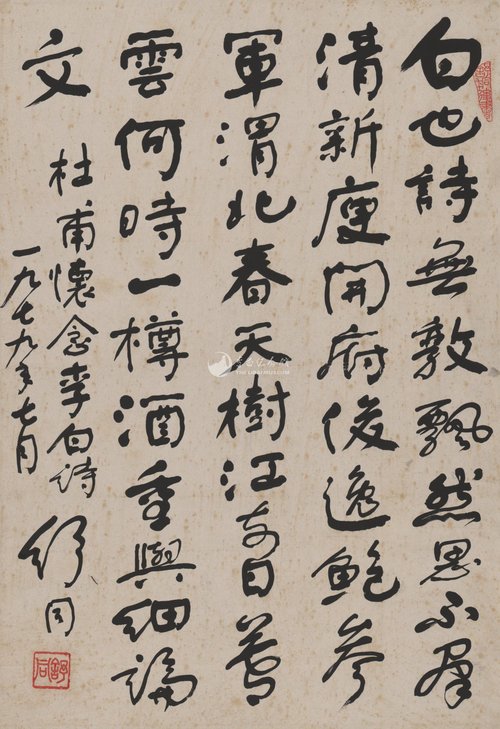 白也詩無敵飄然思不群
清新庾開府俊逸鮑參
軍渭北春天樹江東日暮
雲何時一樽酒重與細論
文
杜甫懷念李白詩
一九七九年七月
舒同
舒同